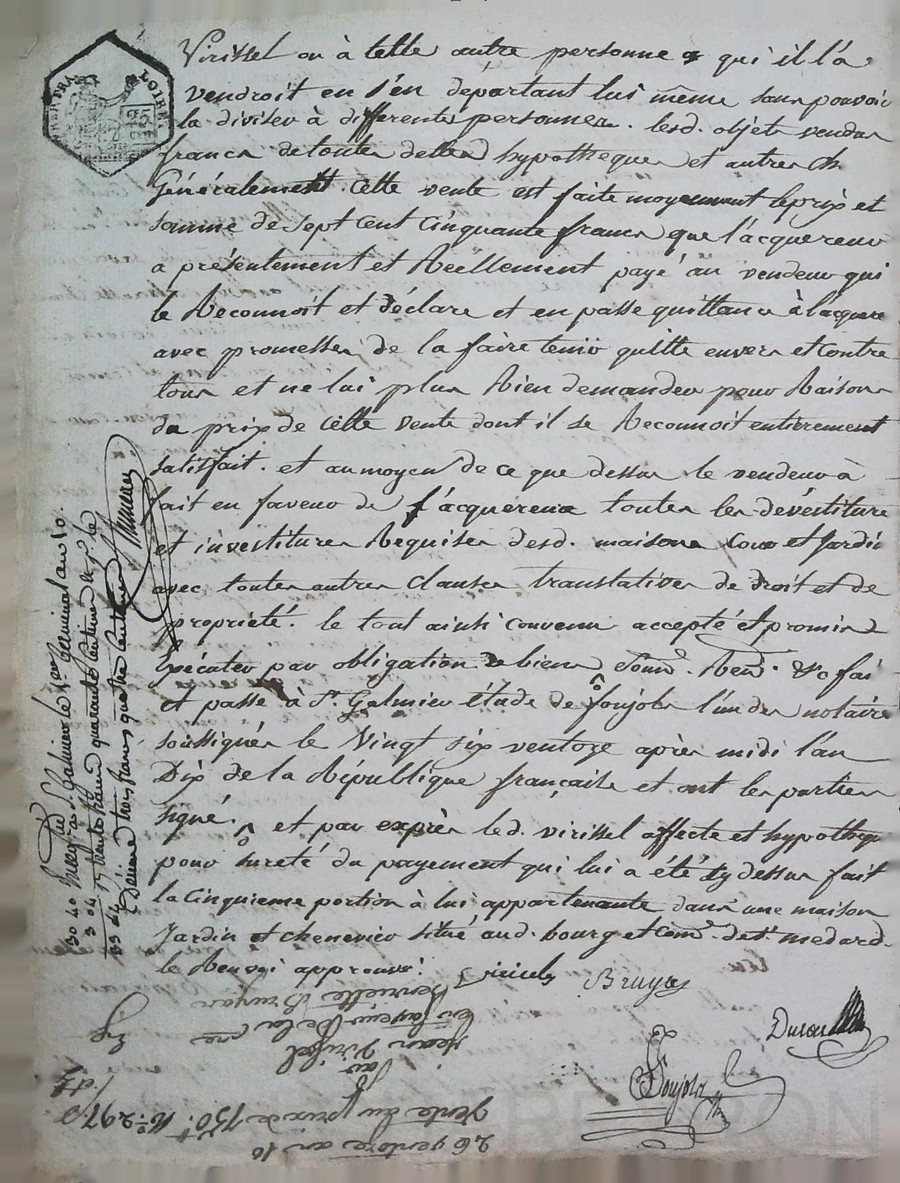 Virissel ou à telle autre personne a qui il l'a
vendroit en s'en départant lui même sans pouvoir
la diviser à differentes personnes. lesd. objets vendus
francs de toutes dettes hypotheques et autres ch.
Généralement. cette vente est faite moyennant le prix et
somme de sept cent cinquante francs que l'acquereur
a présentement et Réellement payé au vendeur qui
le Reconnoit et déclare et en passe quittance à l'acquere
avec promesses de la faire tenir quitte envers et contre
tous et ne lui plus Rien demander pour Raison
du prix de cette vente dont il se Reconnoit entièrement
satisfait. et au moyen de ce que dessus le vendeur à
fait en faveur de l'acquereur toutes les dévestiture
et investitures Requises desd. maison Cour et Jardin
avec toutes autres clauses translatives de droit et de
propriété. le tout ainsi convenu accepté et promis
Exécuter par obligation de biens soum. Ren. &c fai
et passé à St. Galmier étude de foujols l'un des notaire
soussignés le Vingt six ventoze après midi l'an
Dix de la République française et ont les parties
signé. et par exprès led. virissel affecte et hypothequ
pour sureté du payement qui lui a été cy dessus fait
la Cinquieme portion à lui appartenante dans une maison
Jardin et chenevier situé aud. bourg et com. de St. medard.
le Renvoi approuvé.
Bruyas
Duran
Foujols
Enreg. à St. Galmier le 1er Germinal an 10.
30 40
3 04
33 44
26 ventose an 10
Vente du prix de 750 n.° 297
par
jean Virissel
en faveur de la
LOIRE
25